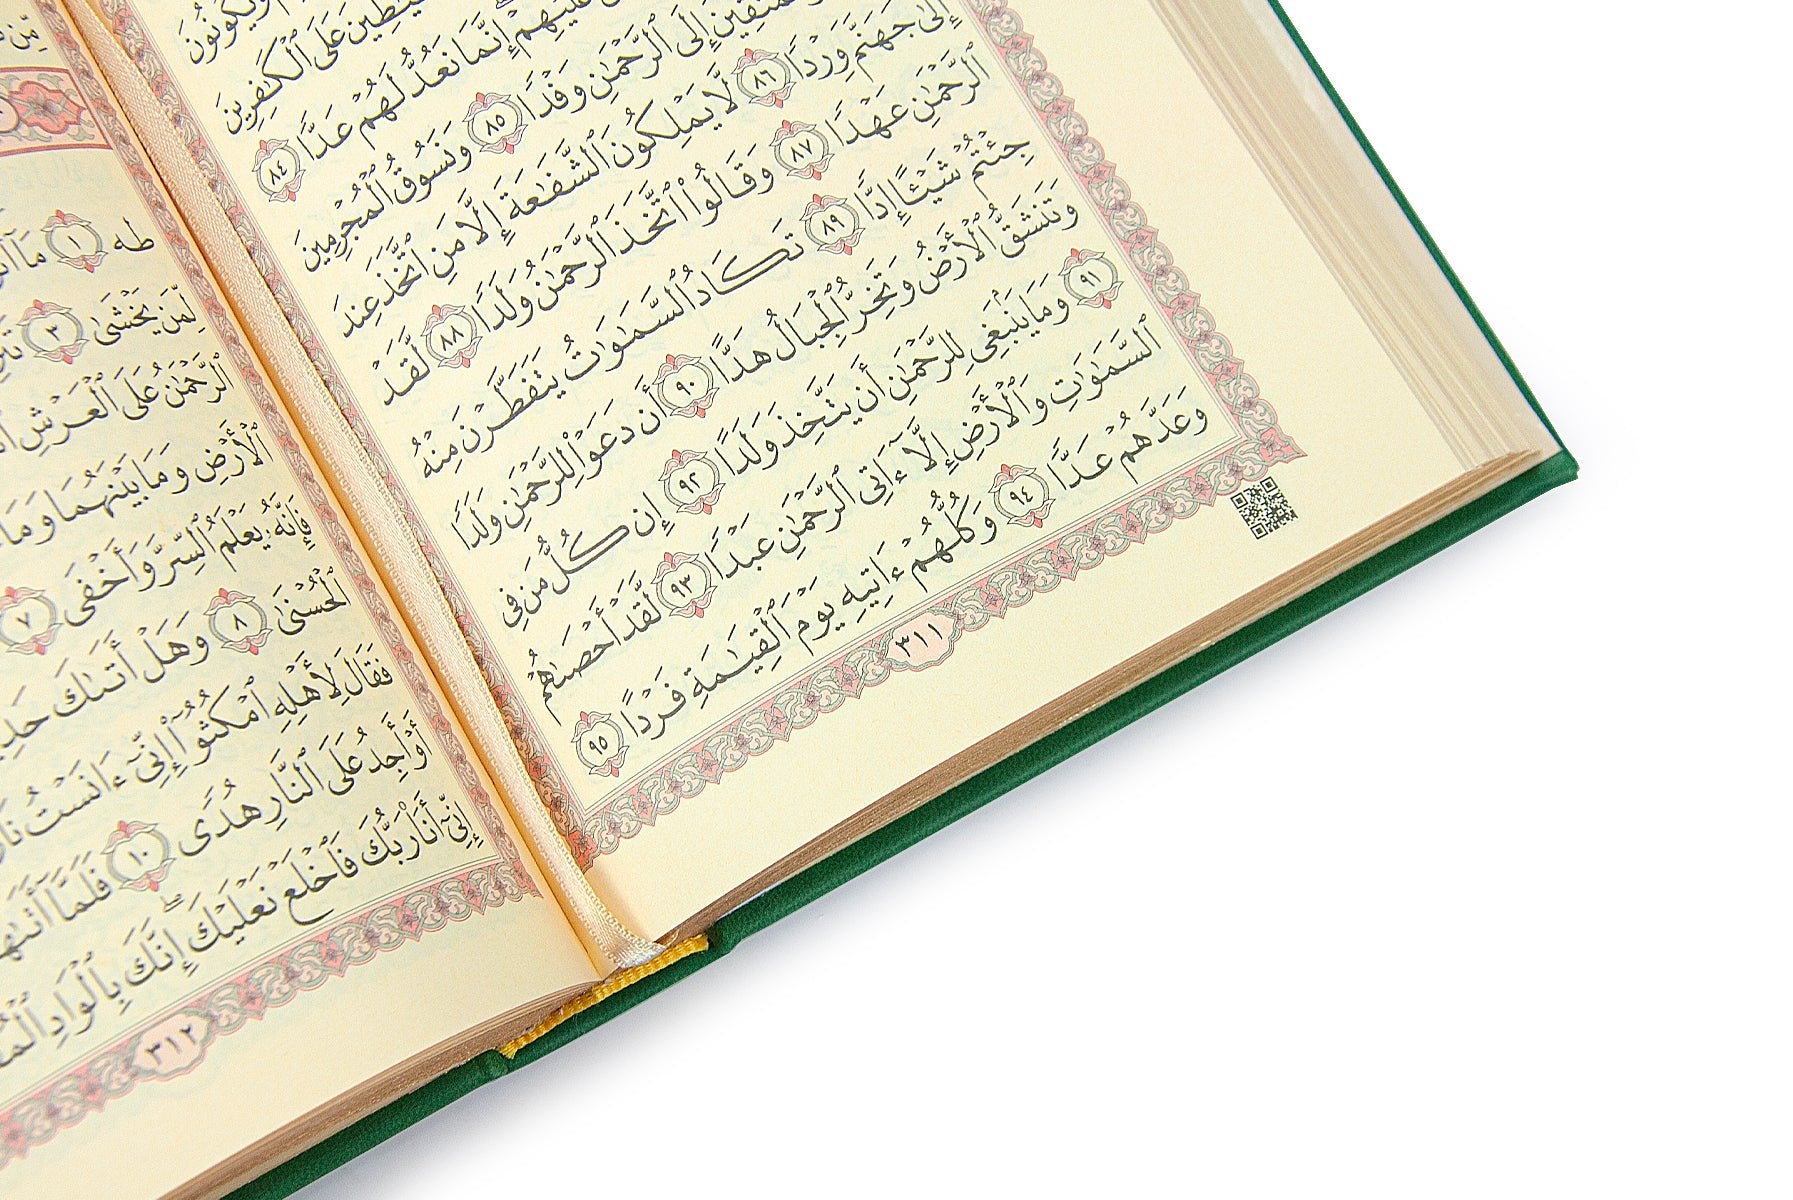 وَيَكُونُونَ
ٱلشَّيَٰطِينَ عَلَى ٱلْكَٰفِرِينَ
عَلَيْهِمْ إِنَّمَا نَعُدُّ لَهُمْ عَدًّا ٨٤
ٱلْمُتَّقِينَ إِلَى ٱلرَّحْمَٰنِ وَفْدًا ٨٥ وَنَسُوقُ ٱلْمُجْرِمِينَ
إِلَىٰ جَهَنَّمَ وِرْدًا ٨٦ لَّا يَمْلِكُونَ ٱلشَّفَٰعَةَ إِلَّا مَنِ ٱتَّخَذَ عِندَ
ٱلرَّحْمَٰنِ عَهْدًا ٨٧ وَقَالُوا۟ ٱتَّخَذَ ٱلرَّحْمَٰنُ وَلَدًا ٨٨ لَّقَدْ
جِئْتُمْ شَيْـًٔا إِدًّا ٨٩ تَكَادُ ٱلسَّمَٰوَٰتُ يَتَفَطَّرْنَ مِنْهُ
وَتَنشَقُّ ٱلْأَرْضُ وَتَخِرُّ ٱلْجِبَالُ هَدًّا ٩٠ أَن دَعَوْا۟ لِلرَّحْمَٰنِ وَلَدًا
٩١ وَمَا يَنۢبَغِى لِلرَّحْمَٰنِ أَن يَتَّخِذَ وَلَدًا ٩٢ إِن كُلُّ مَن فِى
ٱلسَّمَٰوَٰتِ وَٱلْأَرْضِ إِلَّآ ءَاتِى ٱلرَّحْمَٰنِ عَبْدًا ٩٣ لَّقَدْ أَحْصَىٰهُمْ
وَعَدَّهُمْ عَدًّا ٩٤ وَكُلُّهُمْ ءَاتِيهِ يَوْمَ ٱلْقِيَٰمَةِ فَرْدًا ٩٥
٣١١
طه ١ مَآ
لِّمَن يَخْشَىٰ ٣
ٱلرَّحْمَٰنُ عَلَى ٱلْعَرْشِ
ٱلْأَرْضِ وَمَا بَيْنَهُمَا وَمَا
فَإِنَّهُۥ يَعْلَمُ ٱلسِّرَّ وَأَخْفَى ٧
ٱلْحُسْنَىٰ ٨ وَهَلْ أَتَىٰكَ
فَقَالَ لِأَهْلِهِ ٱمْكُثُوٓا۟ إِنِّىٓ ءَانَسْتُ
أَوْ أَجِدُ عَلَى ٱلنَّارِ هُدًى ١٠ فَلَمَّآ أَتَىٰهَا
إِنِّىٓ أَنَا۠ رَبُّكَ فَٱخْلَعْ نَعْلَيْكَ ۖ إِنَّكَ بِٱلْوَادِ
٣١٢